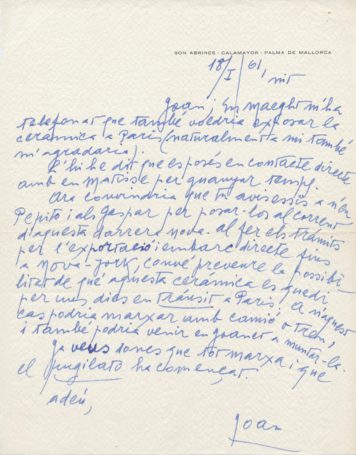 SON ABRINES - CALAMAYOR - PALMA DE MALLORCA
18/I/61, nit
Joan: En Maeght m'ha
telefonat que també voldria exposar la
ceràmica a París (naturalment a mi també
m'agradaria).
L'hi he dit que es posés en contacte directe
amb en Matisse per guanyar temps.
Ara convindria que tu avisessis a n'en
Pepito i als Gaspar per posar-los al corrent
d'aquesta darrera nova. Al fer els tràmits
per l'exportació i embarc directe fins
a Nova-York, convé preveure la possibi-
litat de que aquesta ceràmica es quedi
per uns dies en trànsit a París. A n'aquest
cas podria marxar amb camió o tren,
i també podria venir en Joanet a muntar-la.
Ja veus doncs que tot marxa i que
el pugilato ha començat.
adéu,
Joan